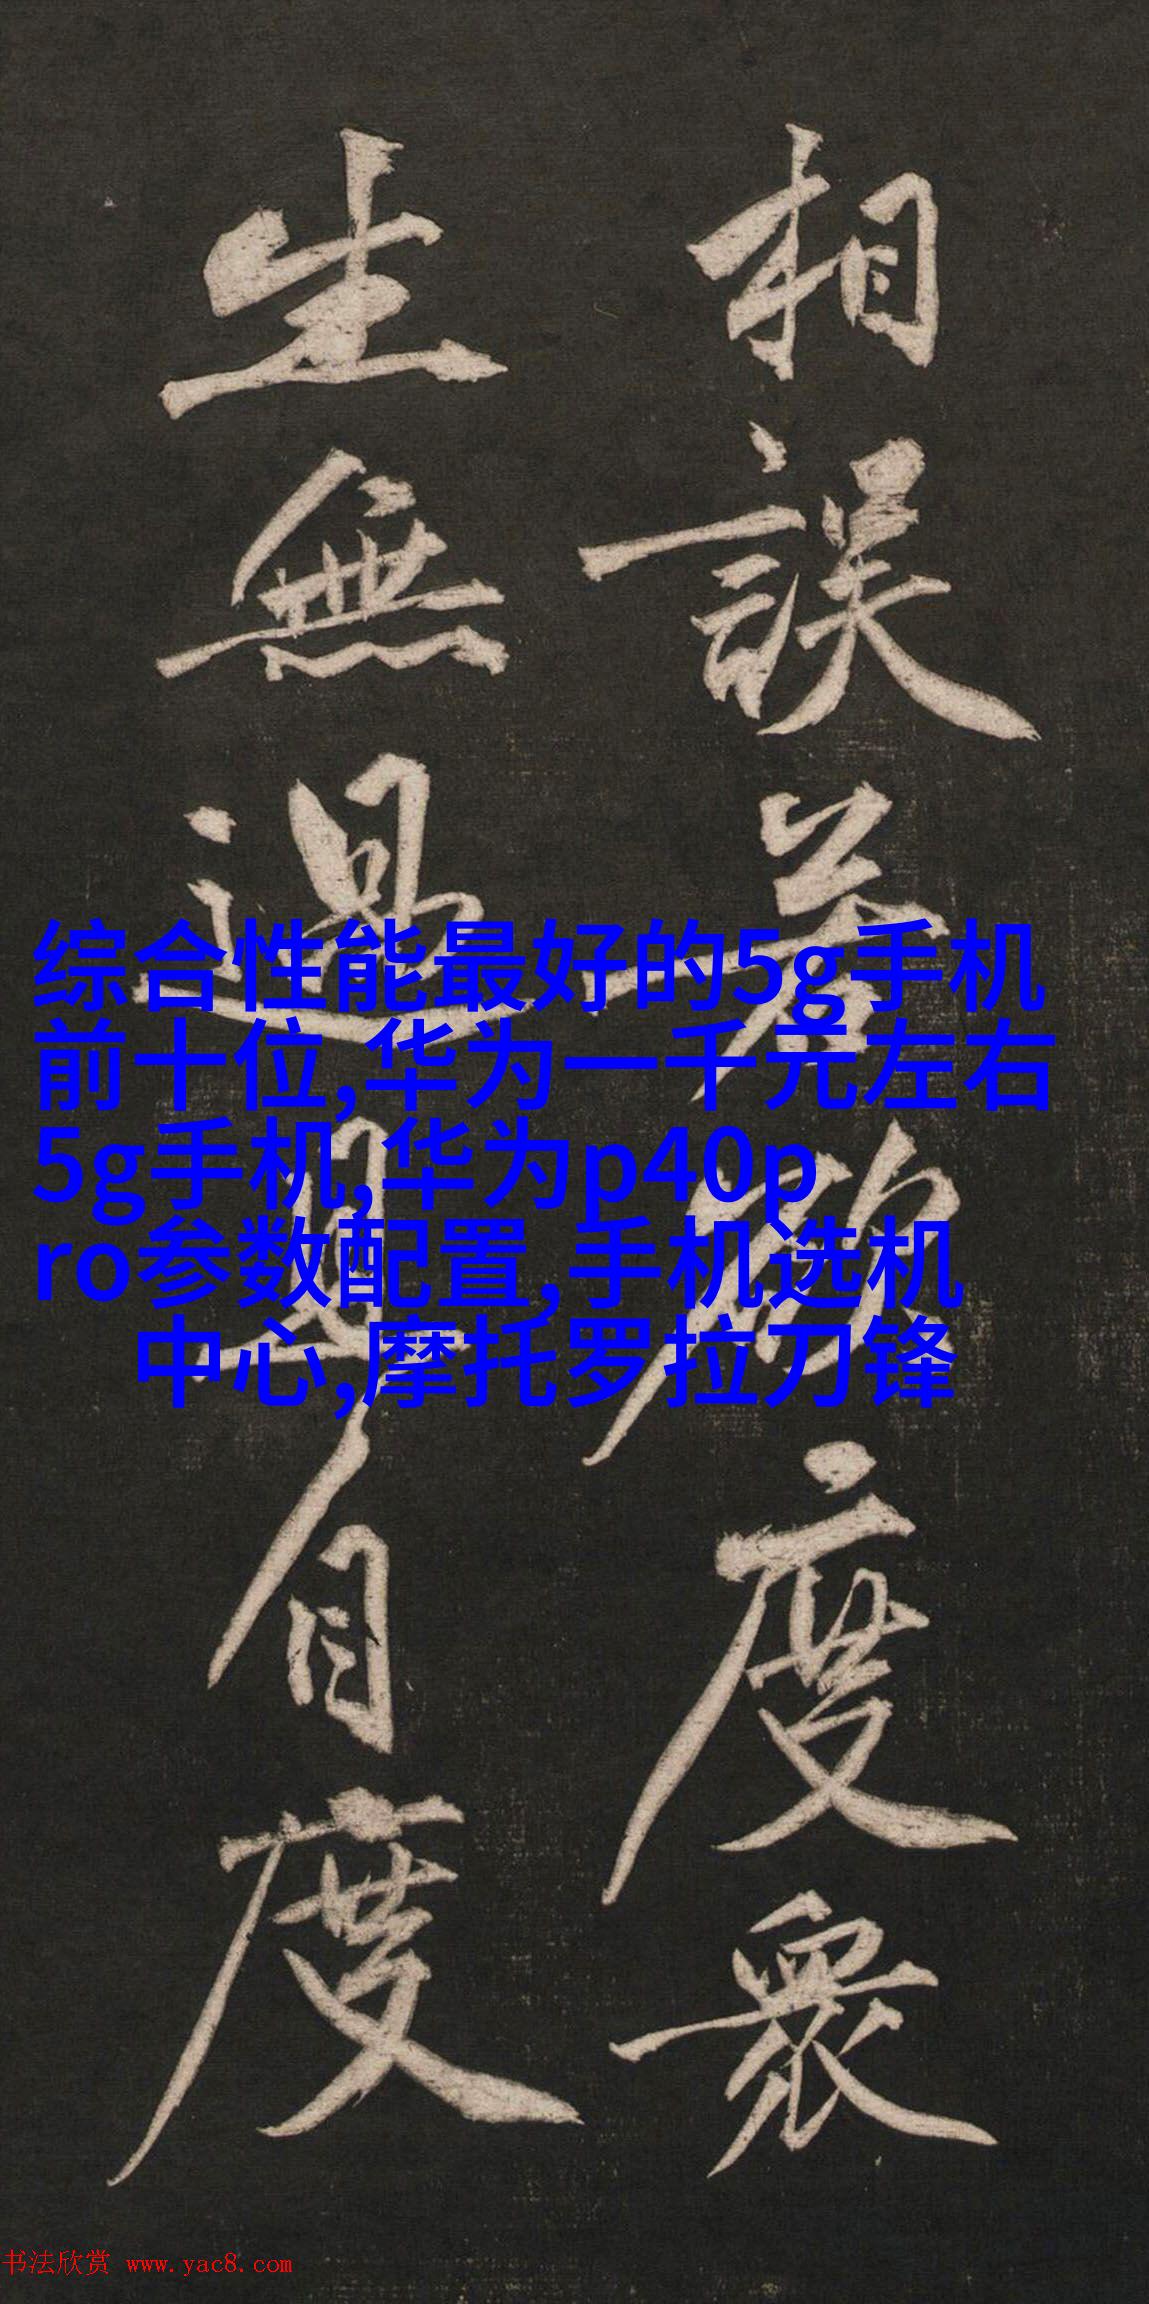 相誤若欲度衆
生無過且自度
综合性能最好的5g手机
前十位,华为一千元左右
5g手机,华为p40p
ro参数配置,手机选机
中心,摩托罗拉刀锋
书法欣赏 www.yac8.com